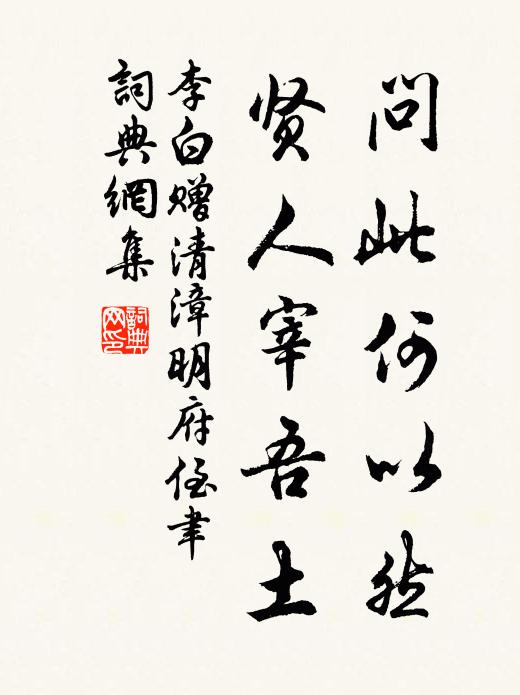 问此何以然
贤人宰吾土
李白赠清漳明府侄聿
詞典網集
詞典
网印